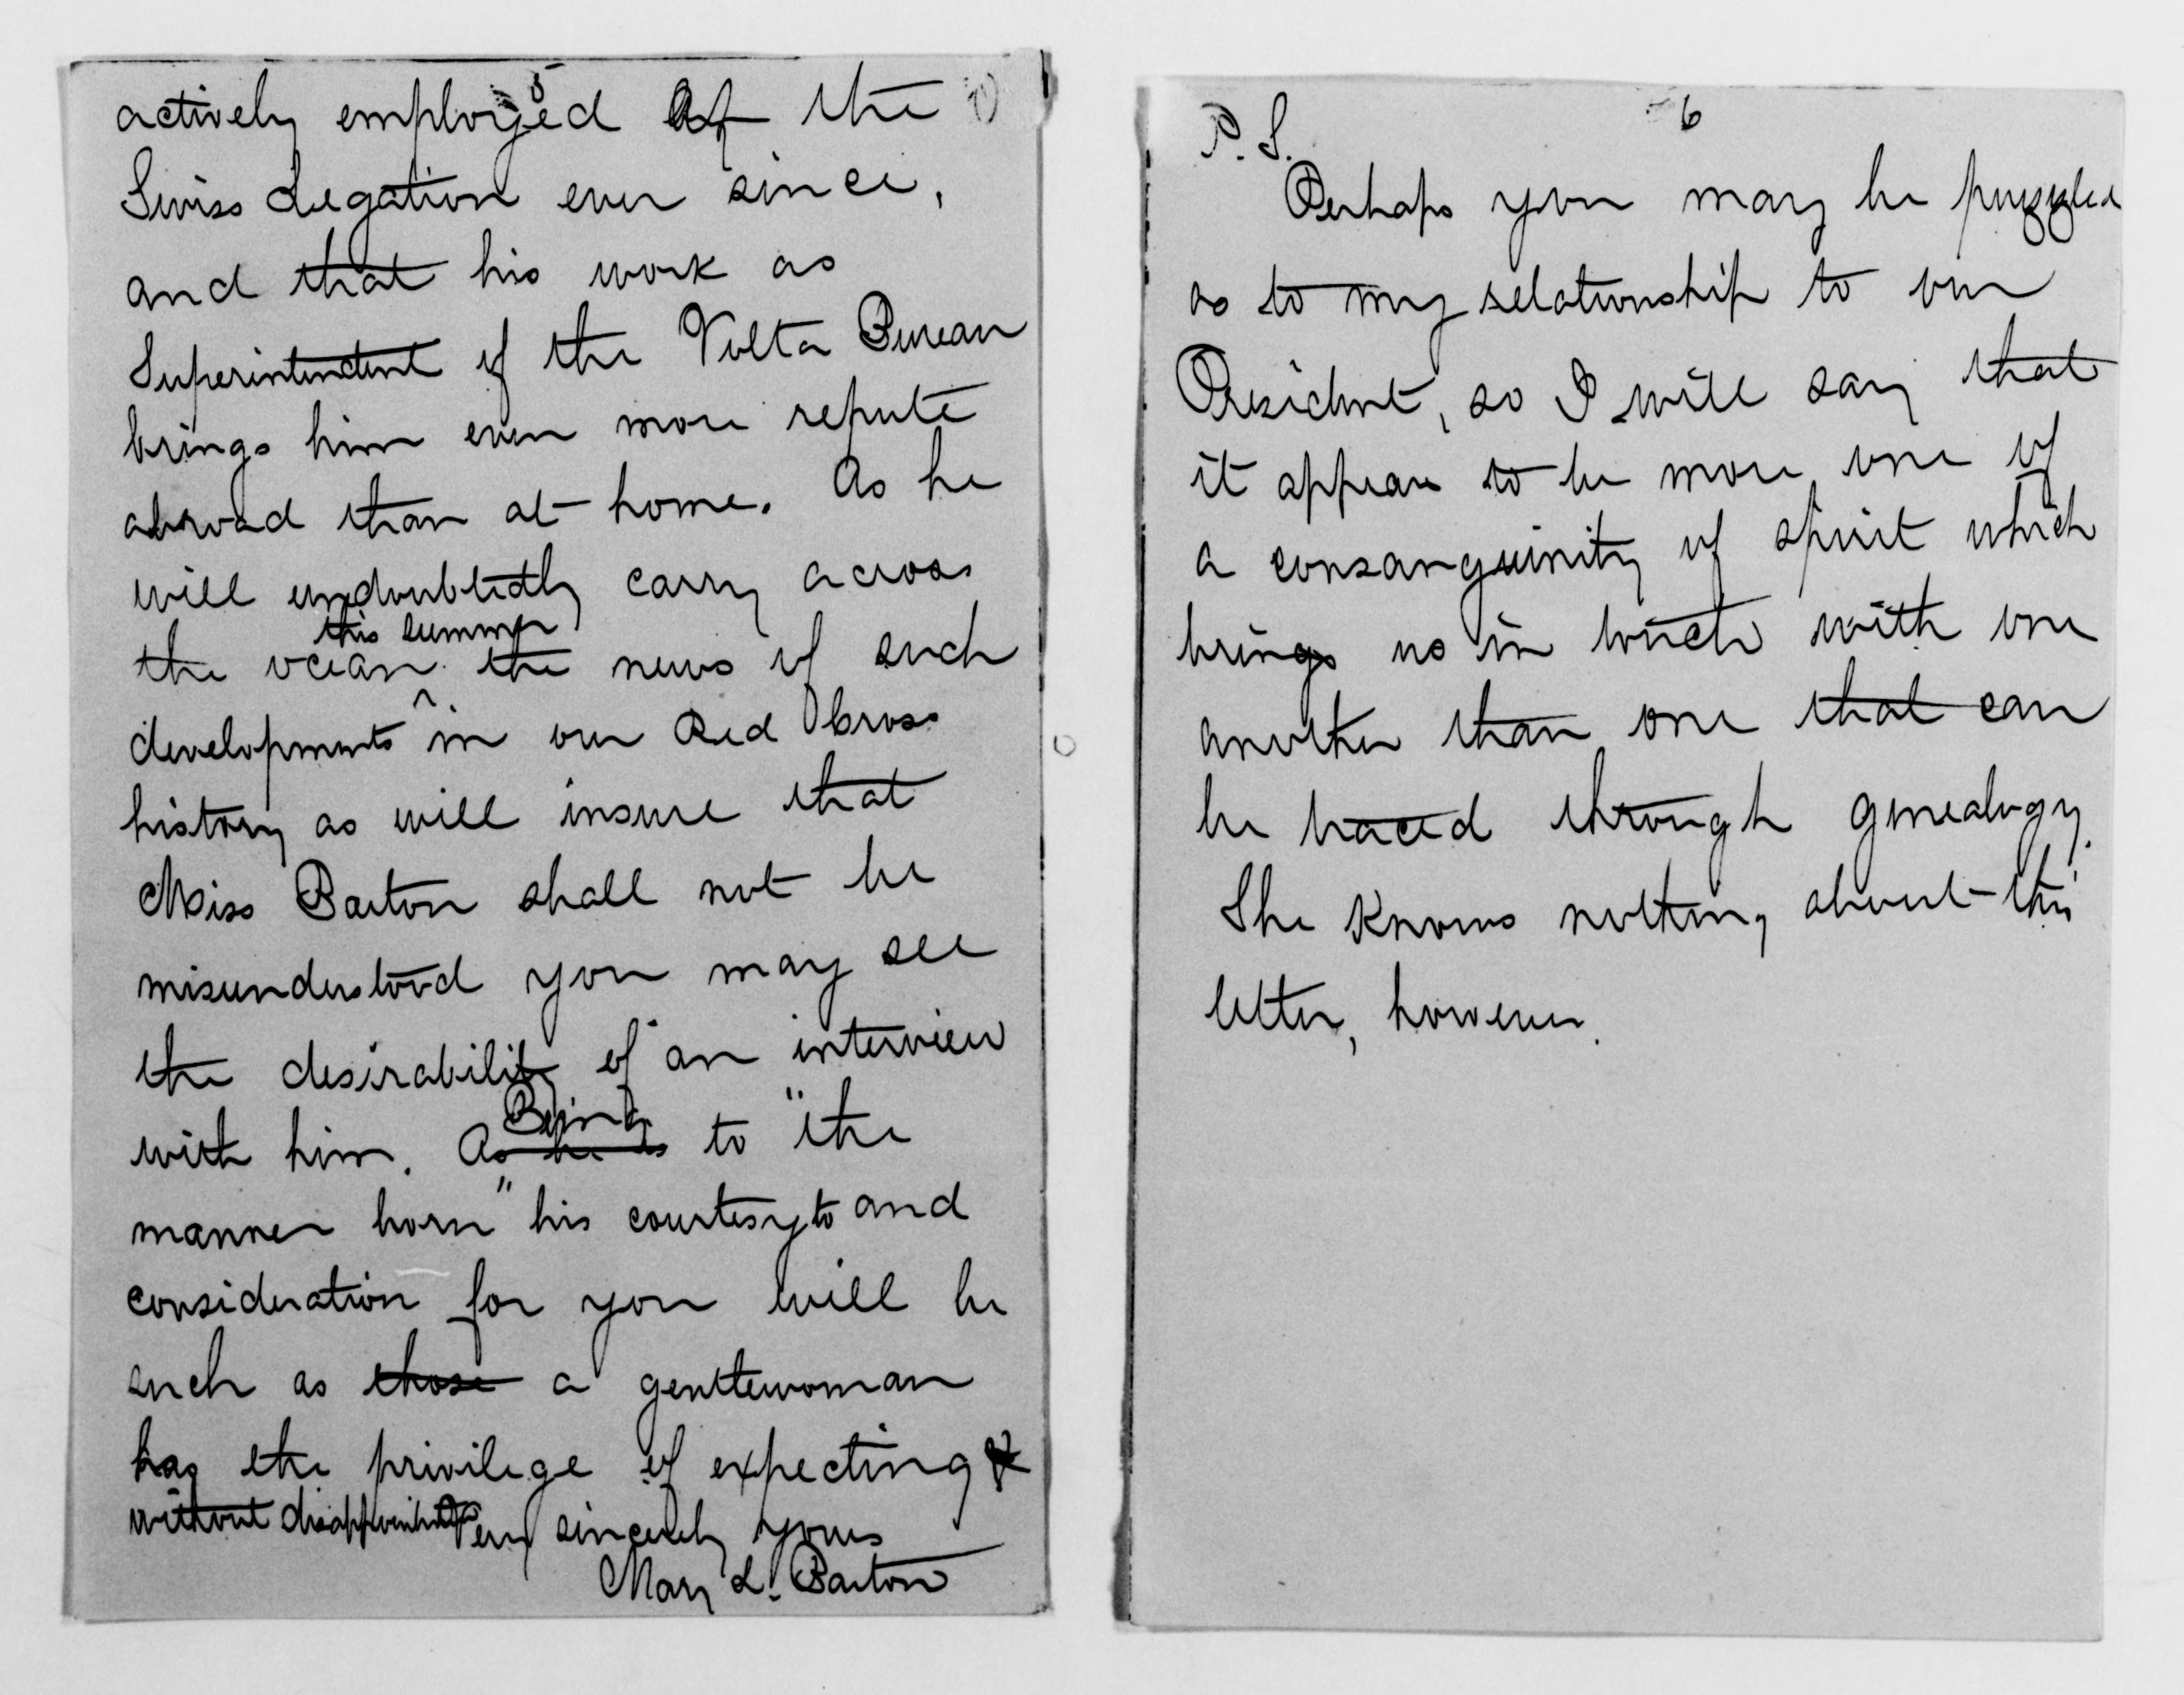 5
actively employed at the
Swiss Legation ever since,
and that his work as
Superintendent of the Volta Bureau
brings him even more repute
abroad than at home. As he
will undoubtedly carry across
this summer
the ocean the news of such
developments in our Red Cross
history as will insure that
Miss Barton shall not be
misunderstood you may see
the desirability of an interview
Being
with him. As he is to "the
manner born" his courtesy to and
consideration for you will be
such as those a gentlewoman
has the privilege of expecting
without disappointment Very sincerely yours
Mary L. Barton
6
P. S.
Perhaps you may be puzzled
as to my relationship to our
President, so I will say that
it appears to be more one of
a consanguinity of spirit which
brings us in touch with one
another than one that can
be traced through genealogy.
She knows nothing about this
letter, however.